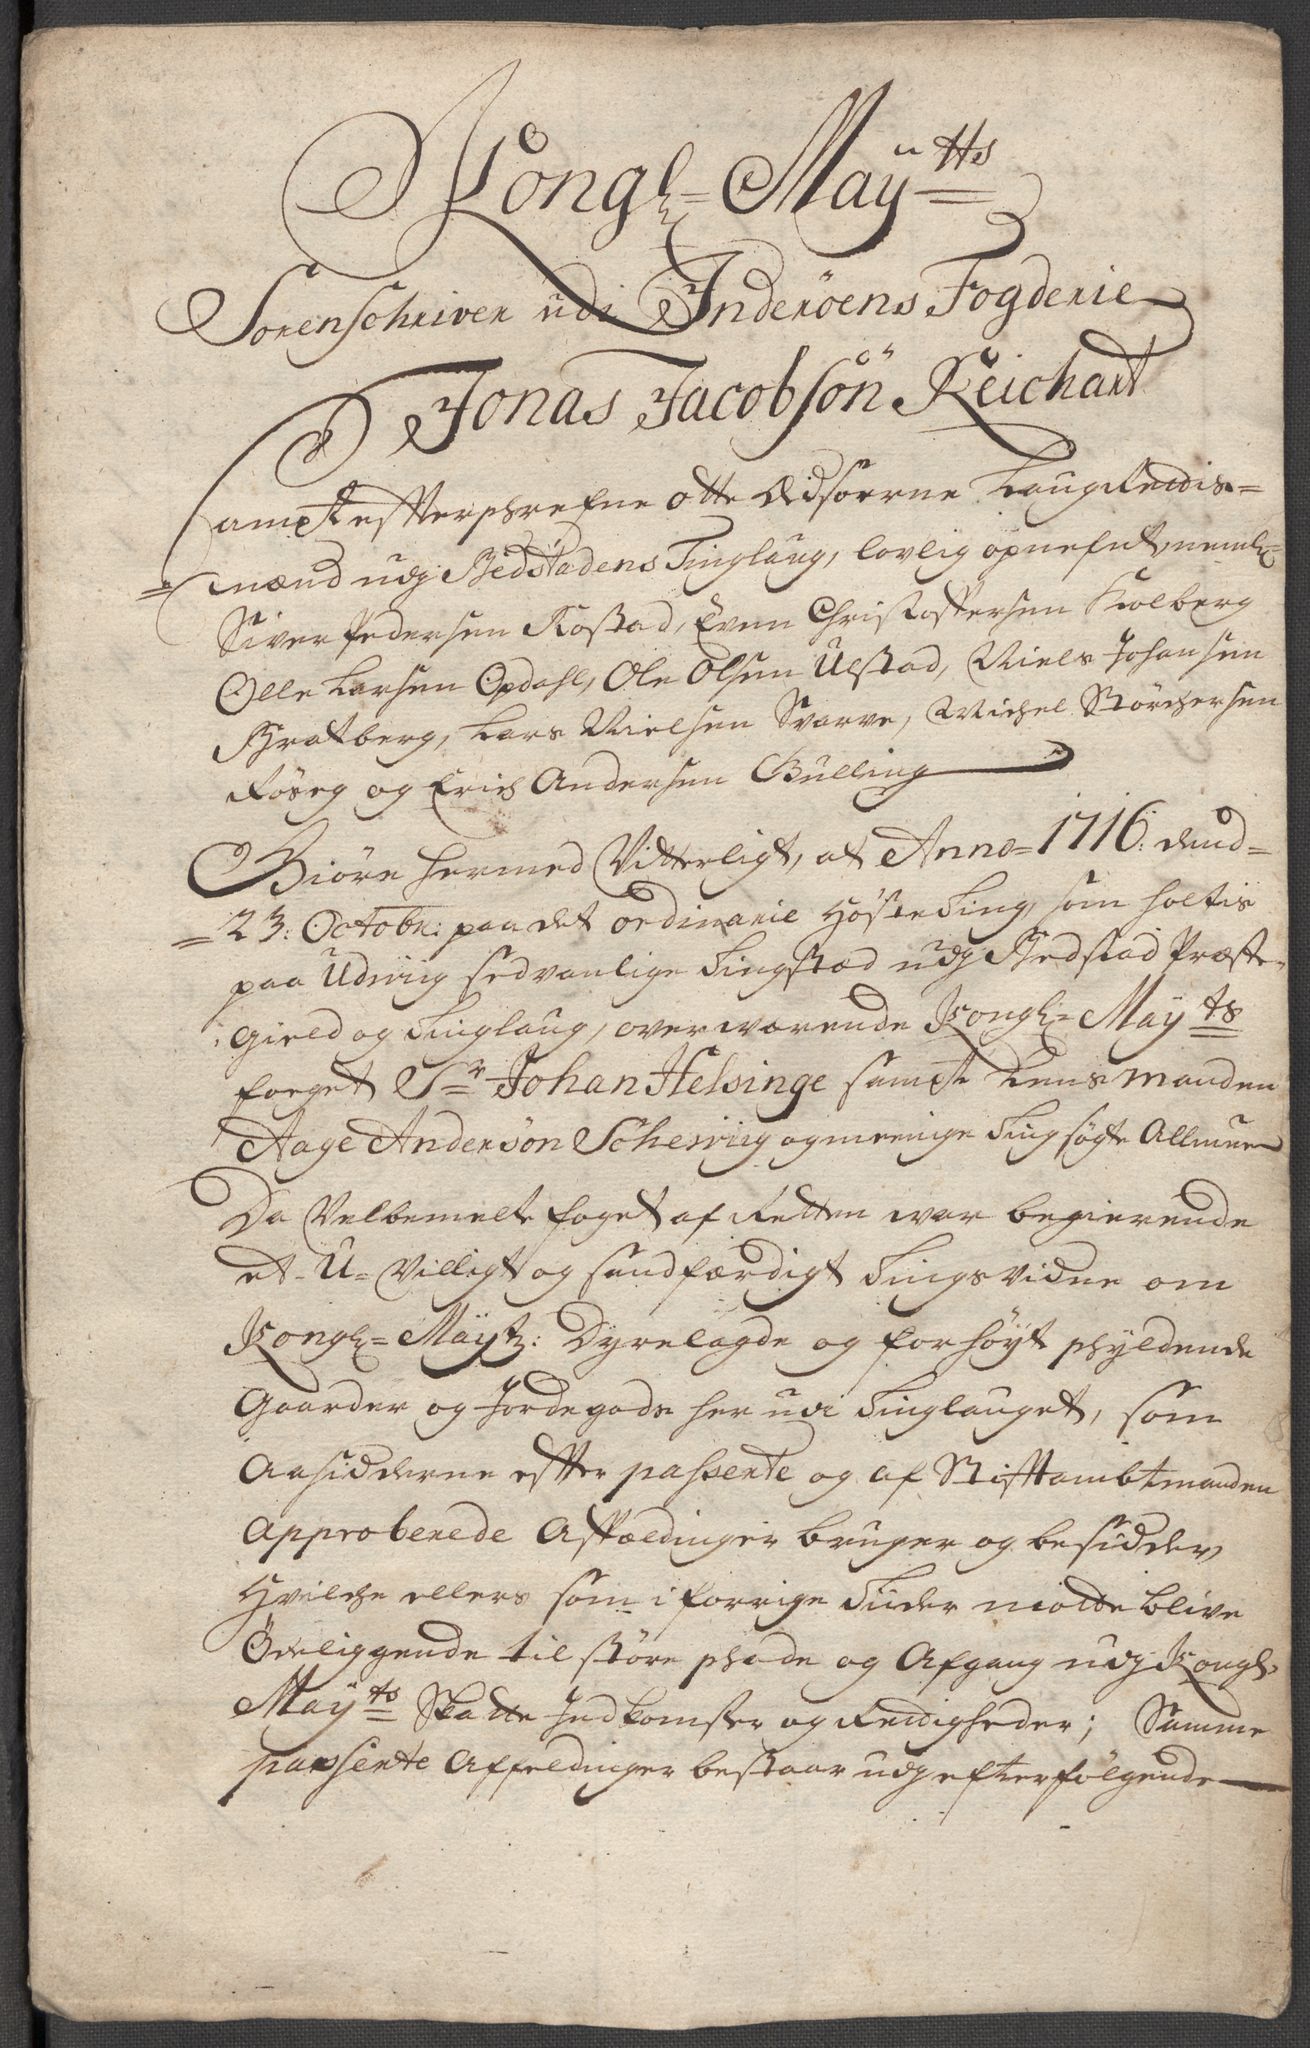 Kongl= Maÿtts
Sorenschriver udi Inderöens Fogderie
Jonas Jacobsön Reichart
Sampt effterschrefne otte Eidsorne Laug Rettis=
=mænd udj Bedstadens Tinglaug, lovlig opnefnt, neml=
Siver Pedersen Kostad, Even Christoffersen Holberg
Olle Larsen Opdahl, Ole Olsen Ulstad, Niels Johansen
Bratberg, Lars Nielsen Svarve, Michel Störchersen
Röseg og Erich Andersen Bulling
Giöre hermed Vitterligt, at Anno= 1716: dend=
=23: Octobr: paa det ordinarie Höste Ting, som holtis
paa Udvig sedvanlige Tingstad udj Bedstad Præste=
gield og Tinglaug, overwærende Kongl= Maÿts
foeget Sr Johan Helsinge sampt Lensmanden
Aage Andersön Schevig og meenige Ting søgte Allmue
Da Velbemelte foget af Retten war begierende
et U= Villigt og sandfærdigt Tingsvidne om
Kongl= Maÿtz: Dyrelagde og forhöyt schyldende
Gaarder og Jordegods her udi Tinglauget, som
Aasidderne effter passerte og af Stifftambtmanden
Approberede Affældinger bruger og besidder
Hvilche ellers som i forrige Tiider motte blive
Ödeliggende til störe schade og Afgang udj Kongl.
Mayts Skatte Indkomster og Rettigheder; Samme
passerte Affeldinger bestaar udj efterfölgende